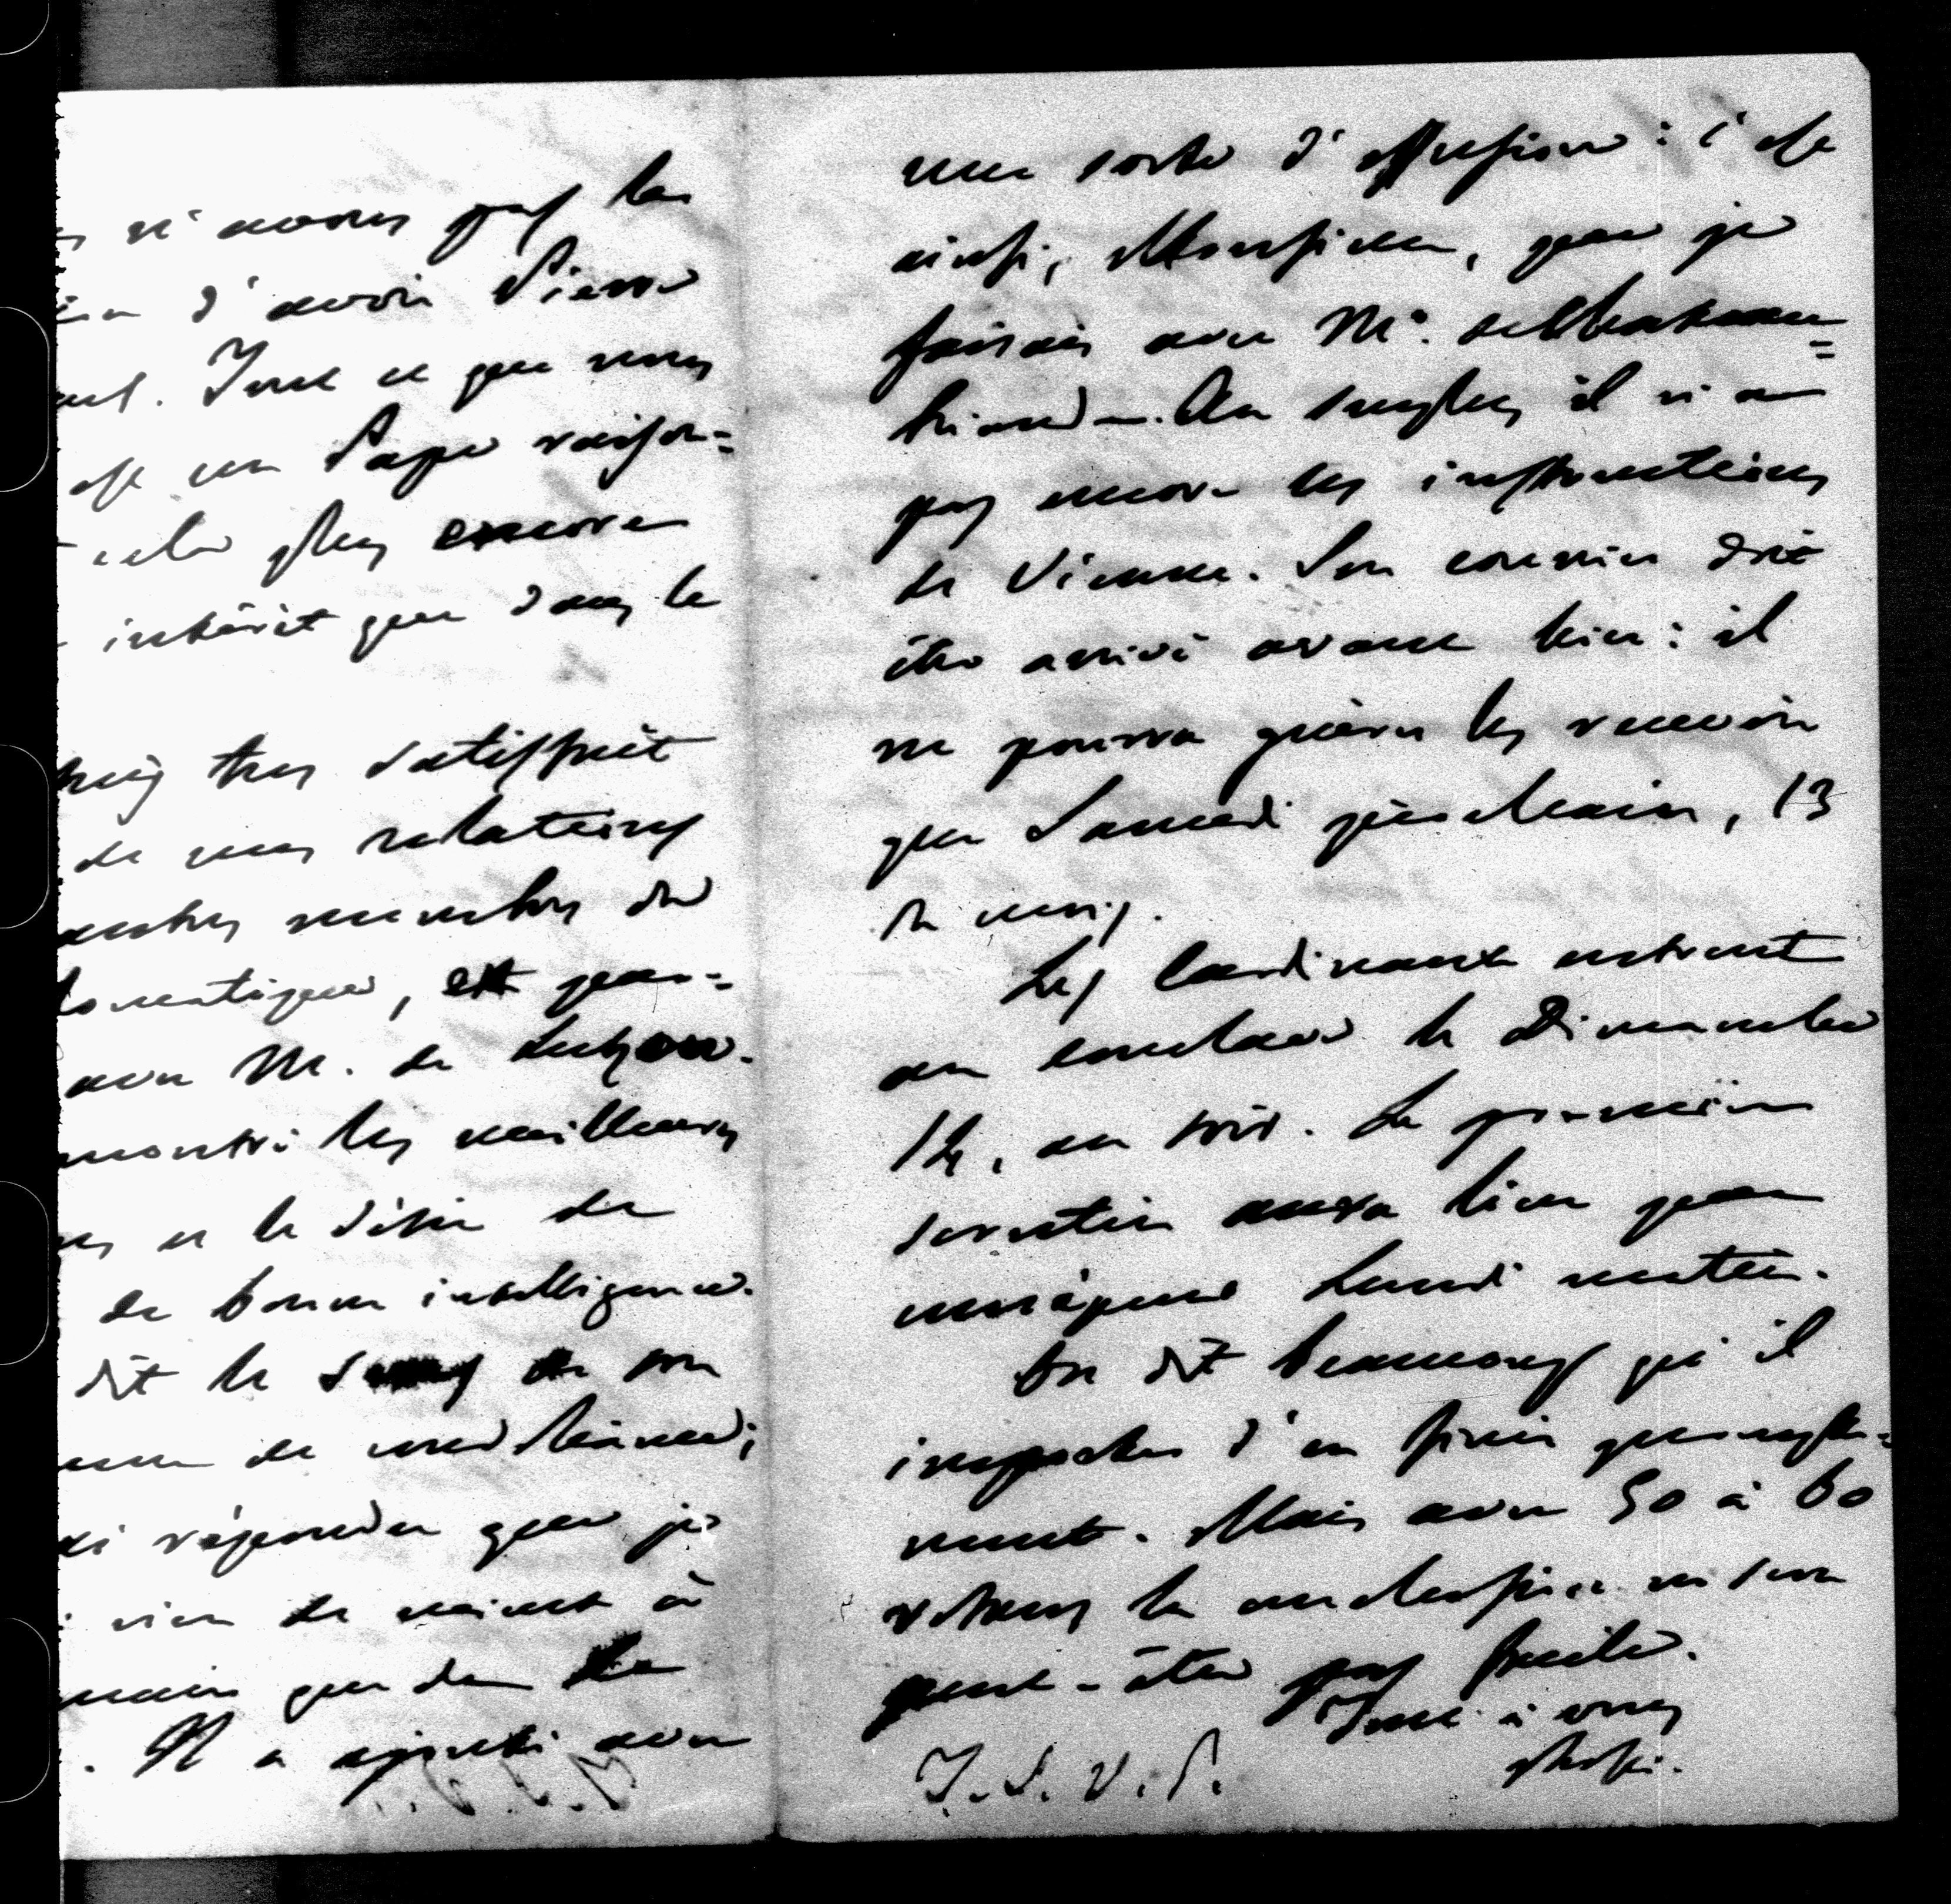 n'avons pas la
d'avoir Pierre
Tout ce que nous
est un Pape raison=
cela plus encore
intérêt que dans le
très satisfait
de mes relations
autres membres du
, et par=
avec M. de Lutzow.
montré les meilleurs
et le désir de
de bonne intelligence.
dit le de son
de
répondu que je
rien de mieux à
que de
. Il a ajouté avec
une sorte d'effusion : c'est
ainsi, Monsieur, que je
faisais avec Mr. de Chateau=
briand. Au surplus il n'a
pas encore les instructions
de Vienne. Son courrier doit
être arrivé avant hier : il
ne pourra guères les recevoir
que Samedi prochain, 13
du mois.
Les Cardinaux entrent
au conclave le Dimanche
14, au soir. Le premier
scrutin aura lieu par
conséquent Lundi matin.
On dit beaucoup qu'il
importe d'en finir prompte=
ment. Mais avec 50 à 60
votans la ne sera
peut-être pas facile.
Tout à vous
T.S.V.P.